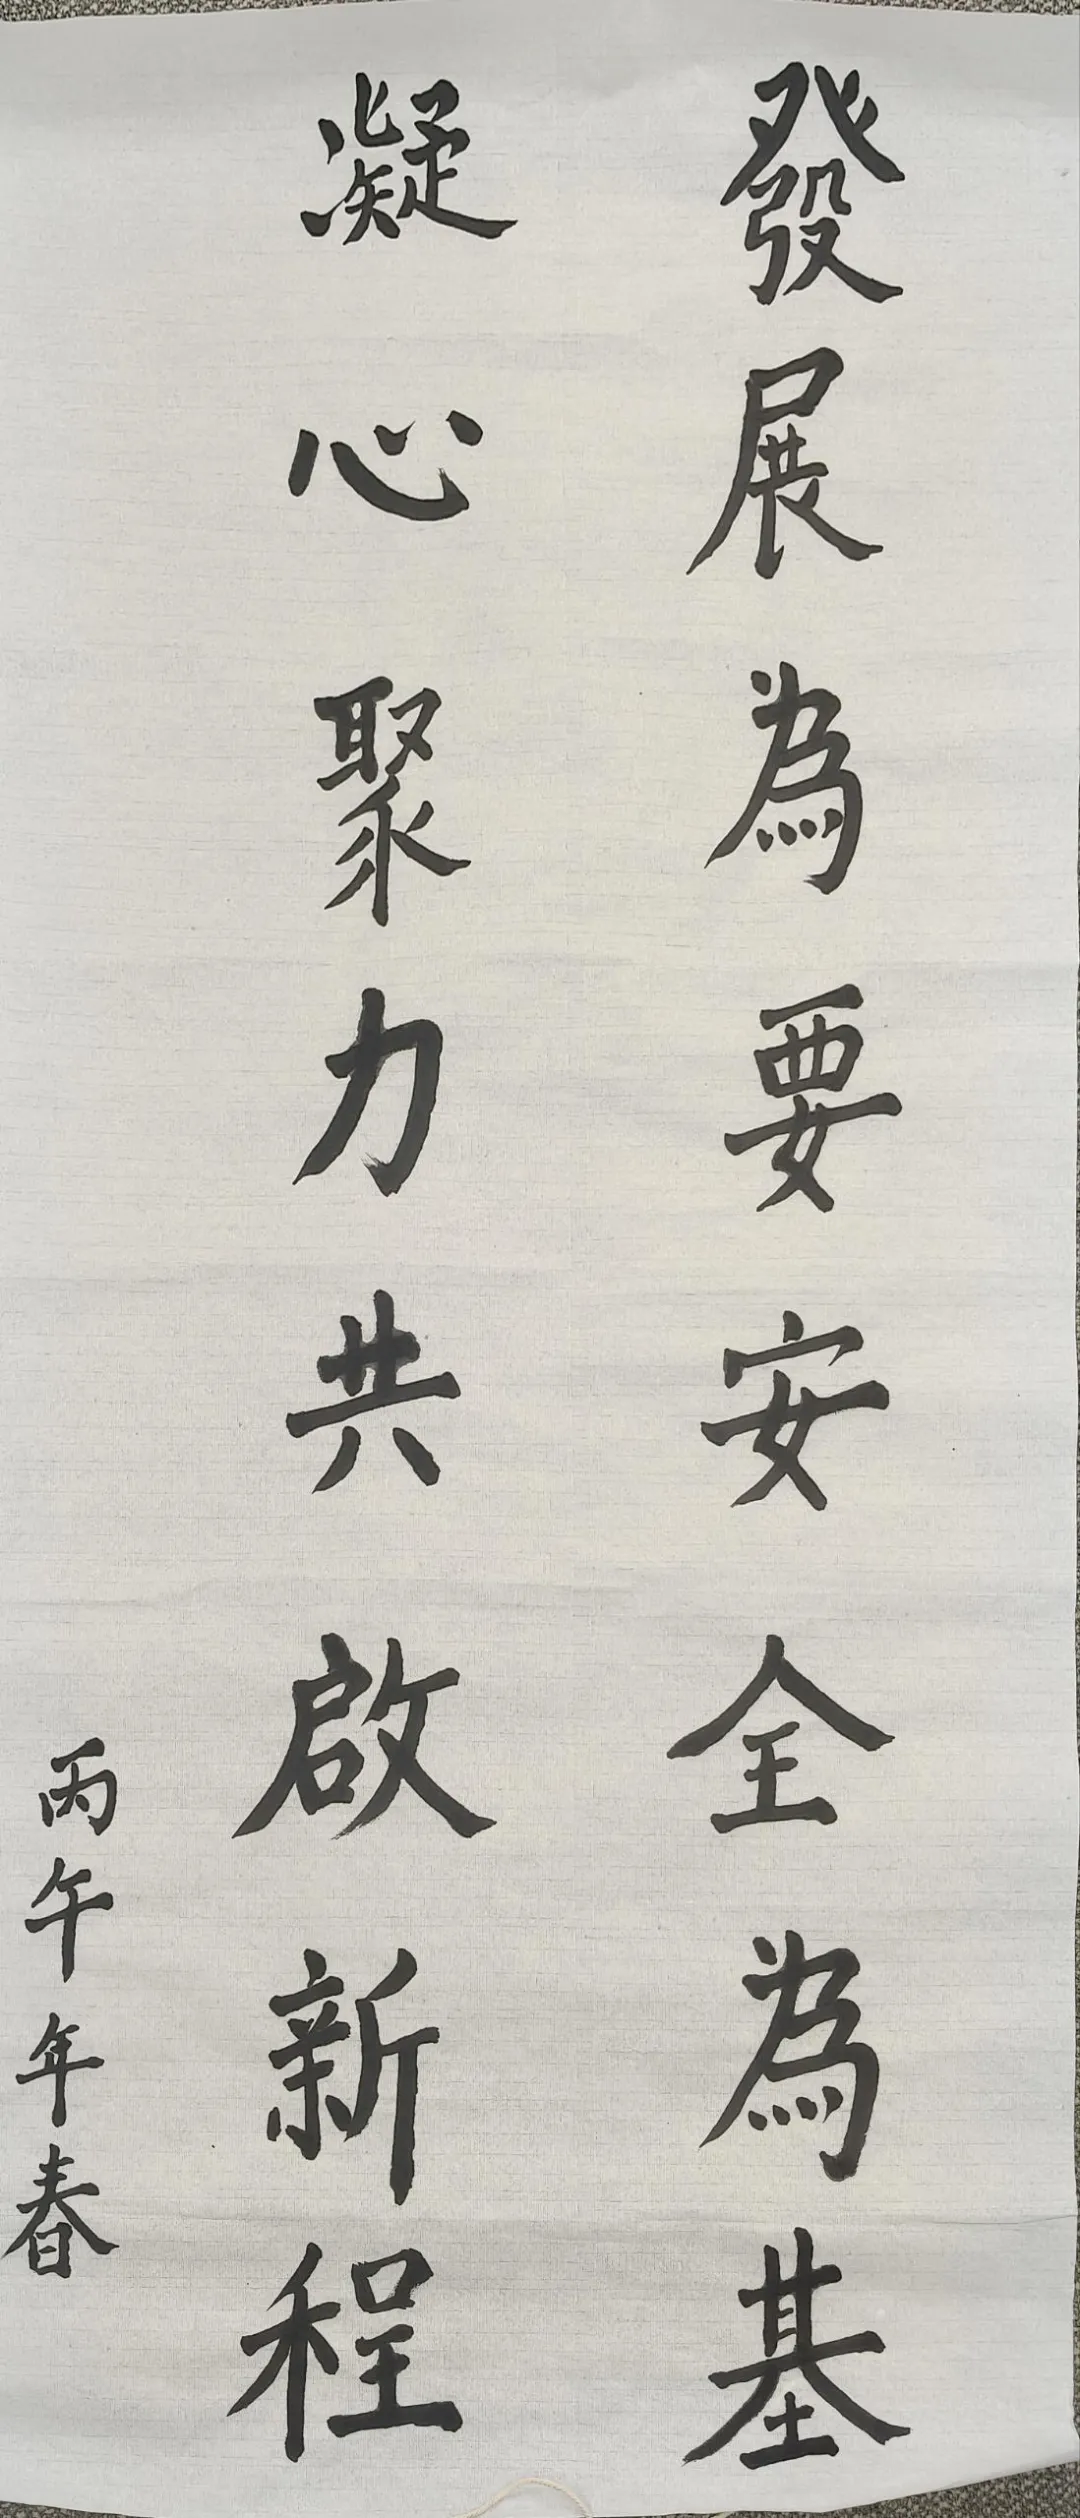 發展為要安全為基
凝心聚力共啟新程
丙午年春